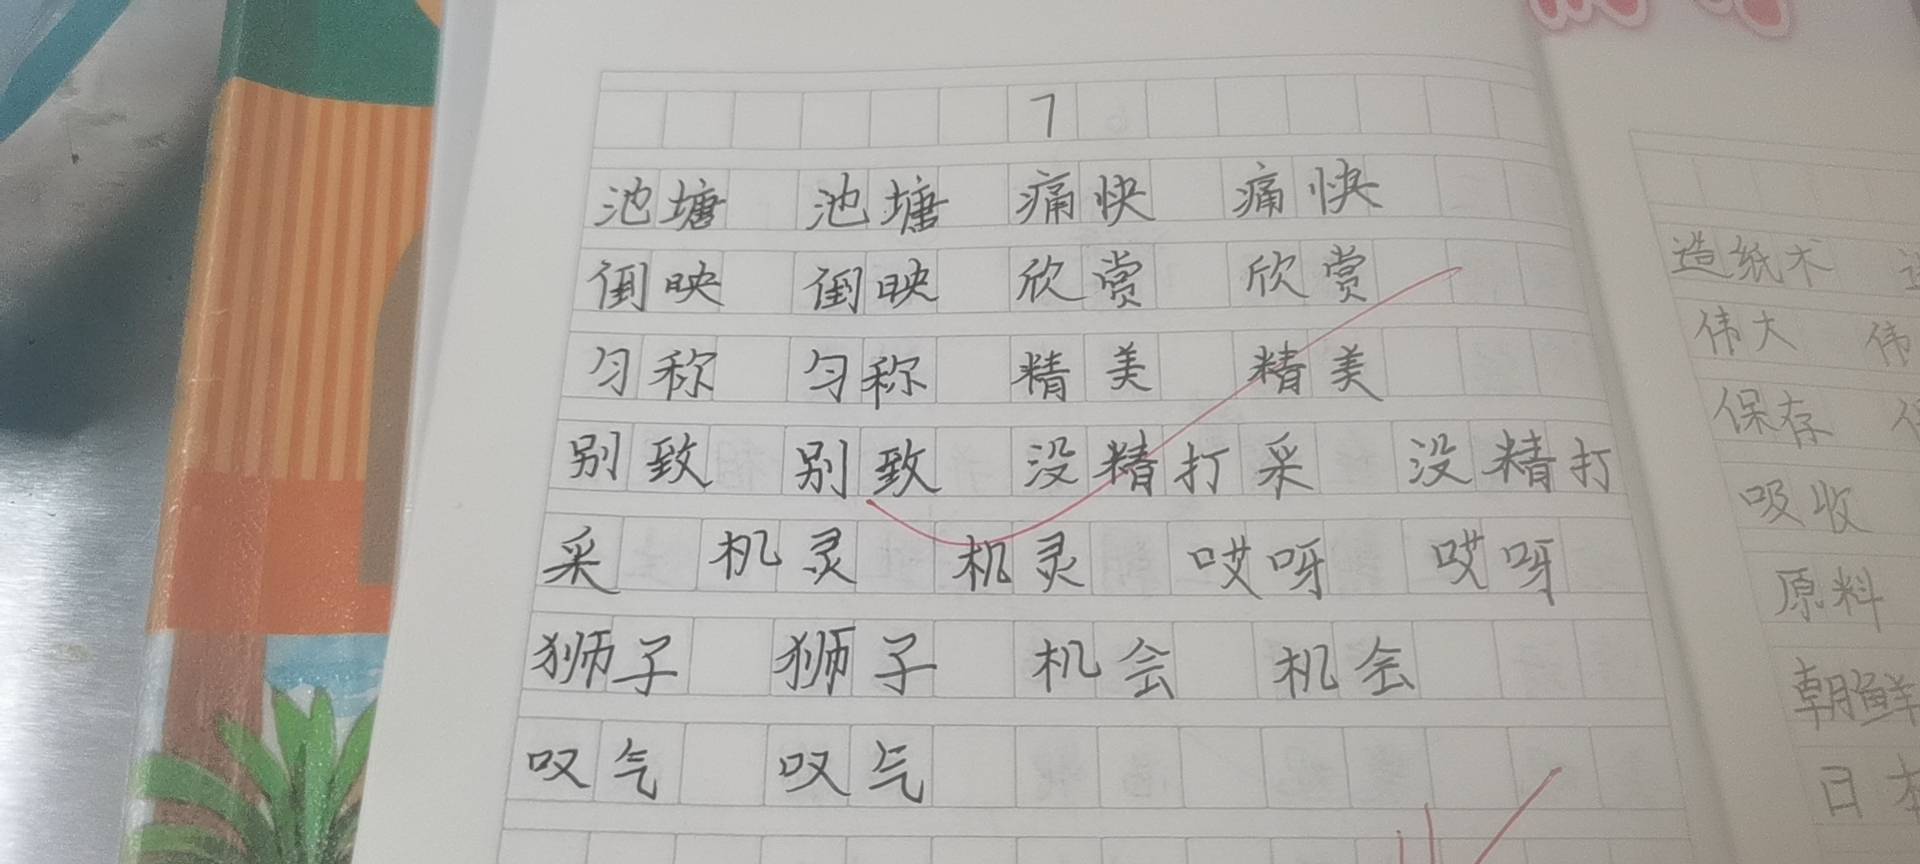 7
池塘 池塘 痛快 痛快
倒映 倒映 欣赏 欣赏
匀称 匀称 精美 精美
别致 别致 没精打采 没精打
采 机灵 机灵 哎呀 哎呀
狮子 狮子 机会 机会
叹气 叹气
造纸术
伟大 伟
保存
吸收
原料
朝鲜
日本